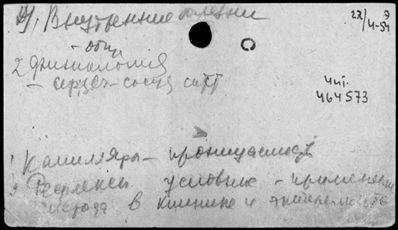 Внутренние болезни
22/4-54
- общ.
2 Физиология
- сердеч-сосуд сист
Чит.
464573
1 Капилляры - проницаемость
2 Рефлексы условные - применение
метода в клинике и